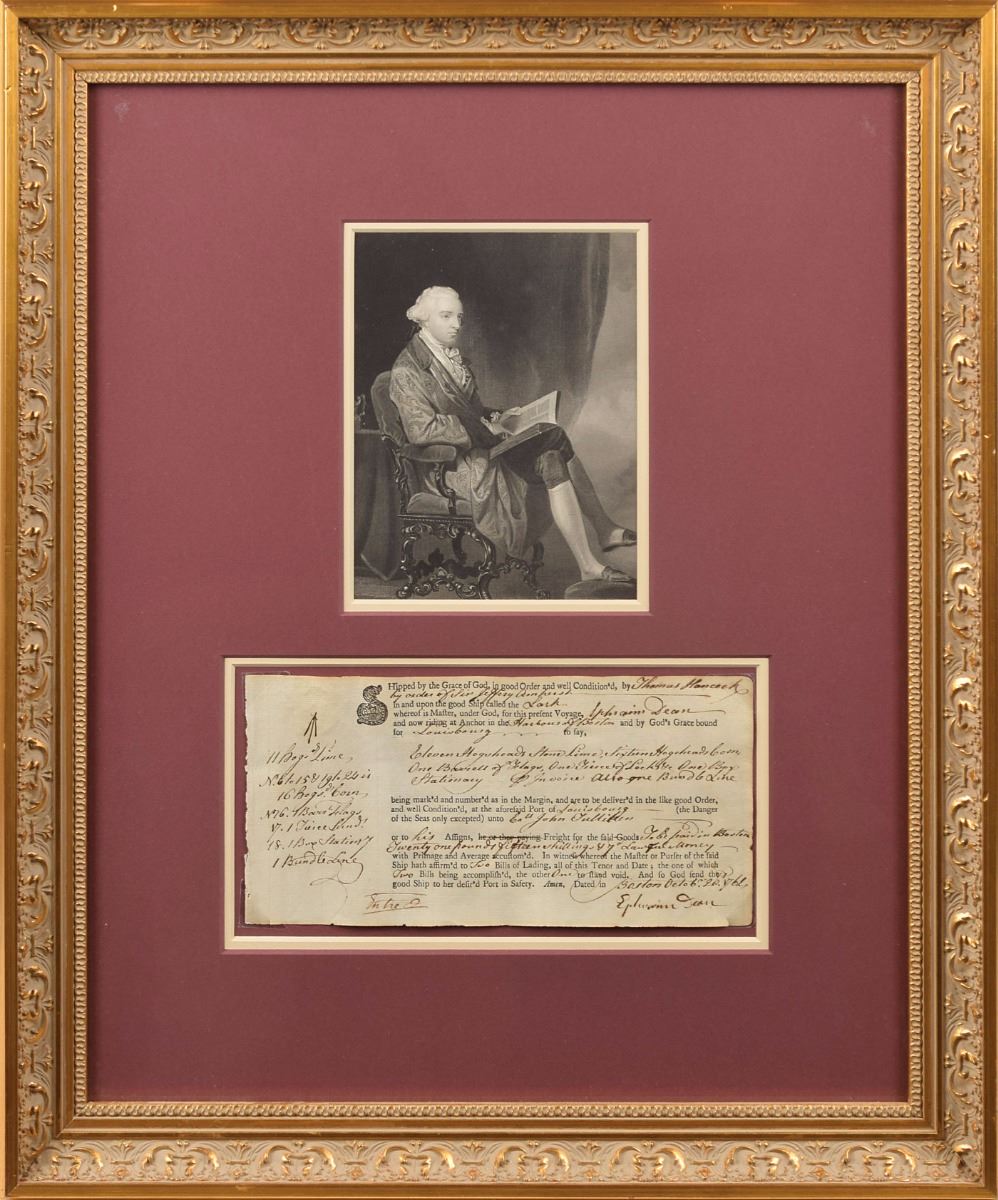 Shipped by the Grace of God, in good Order and well Condition'd, by Thomas Hancock
by order of Sir Jeffry Amherst
In and upon the good Ship called the Lark
whereof is Master, under God, for this present Voyage, Ephraim Dean
and now riding at Anchor in the Harbour of Boston and by God's Grace bound
for Louisbourg to say,
Eleven Hogsheads Stone Lime, Sixteen Hogsheads Coin
One Barrell of Flags, One Tierce of One Box
Stationary Invoice Also one Bundle Line
being mark'd and number'd as in the Margin, and are to be deliver'd in the like good Order,
and well Condition'd, at the aforesaid Port of Louisbourg (the Danger
of the Seas only excepted) unto John
or to his Assigns, he or they paying Freight for the said Goods To be paid in Boston
Twenty one pounds fifteen shillings & 7 Lawful Money
with Primage and Average accustom'd. In witness whereof the Master or Purser of the said
Ship hath affirm'd to Two Bills of Lading, all of this Tenor and Date; the one of which
Two Bills being accomplish'd, the other One to stand void. And so God send the
good Ship to her desir'd Port in Safety. Amen, Dated in Boston Octob.
Ephraim Dean
11 Hogs.d Lime
16 Hogs.d Coin
1 Barr.l Flags
1 Tierce
18. 1 Box Stationry
1 Bundle Line
Entred